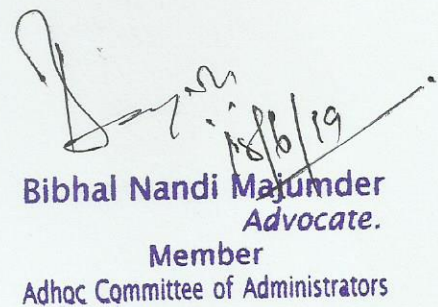 18/6/19
Bibhal Nandi Majumder
Advocate.
Member
Adhoc Committee of Administrators